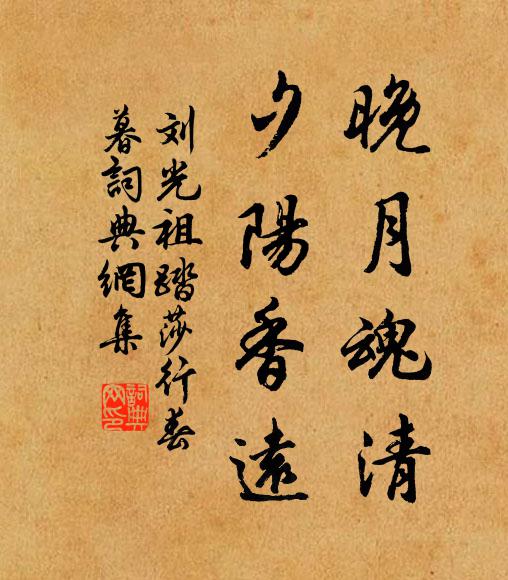 晚月魂清
夕陽香遠
刘光祖踏莎行春
暮詞典網集
詞典网印